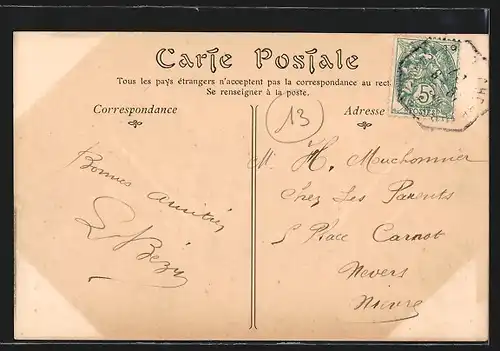 Carte Postale
Tous les pays étrangers n'acceptent pas la correspondance au rect
Se renseigner à la poste.
Correspondance
Adresse
13
5
Bonnes amitiés
M. H. Muchonnier
Chez Ses Parents
5 Place Carnot
Nevers
Nièvre